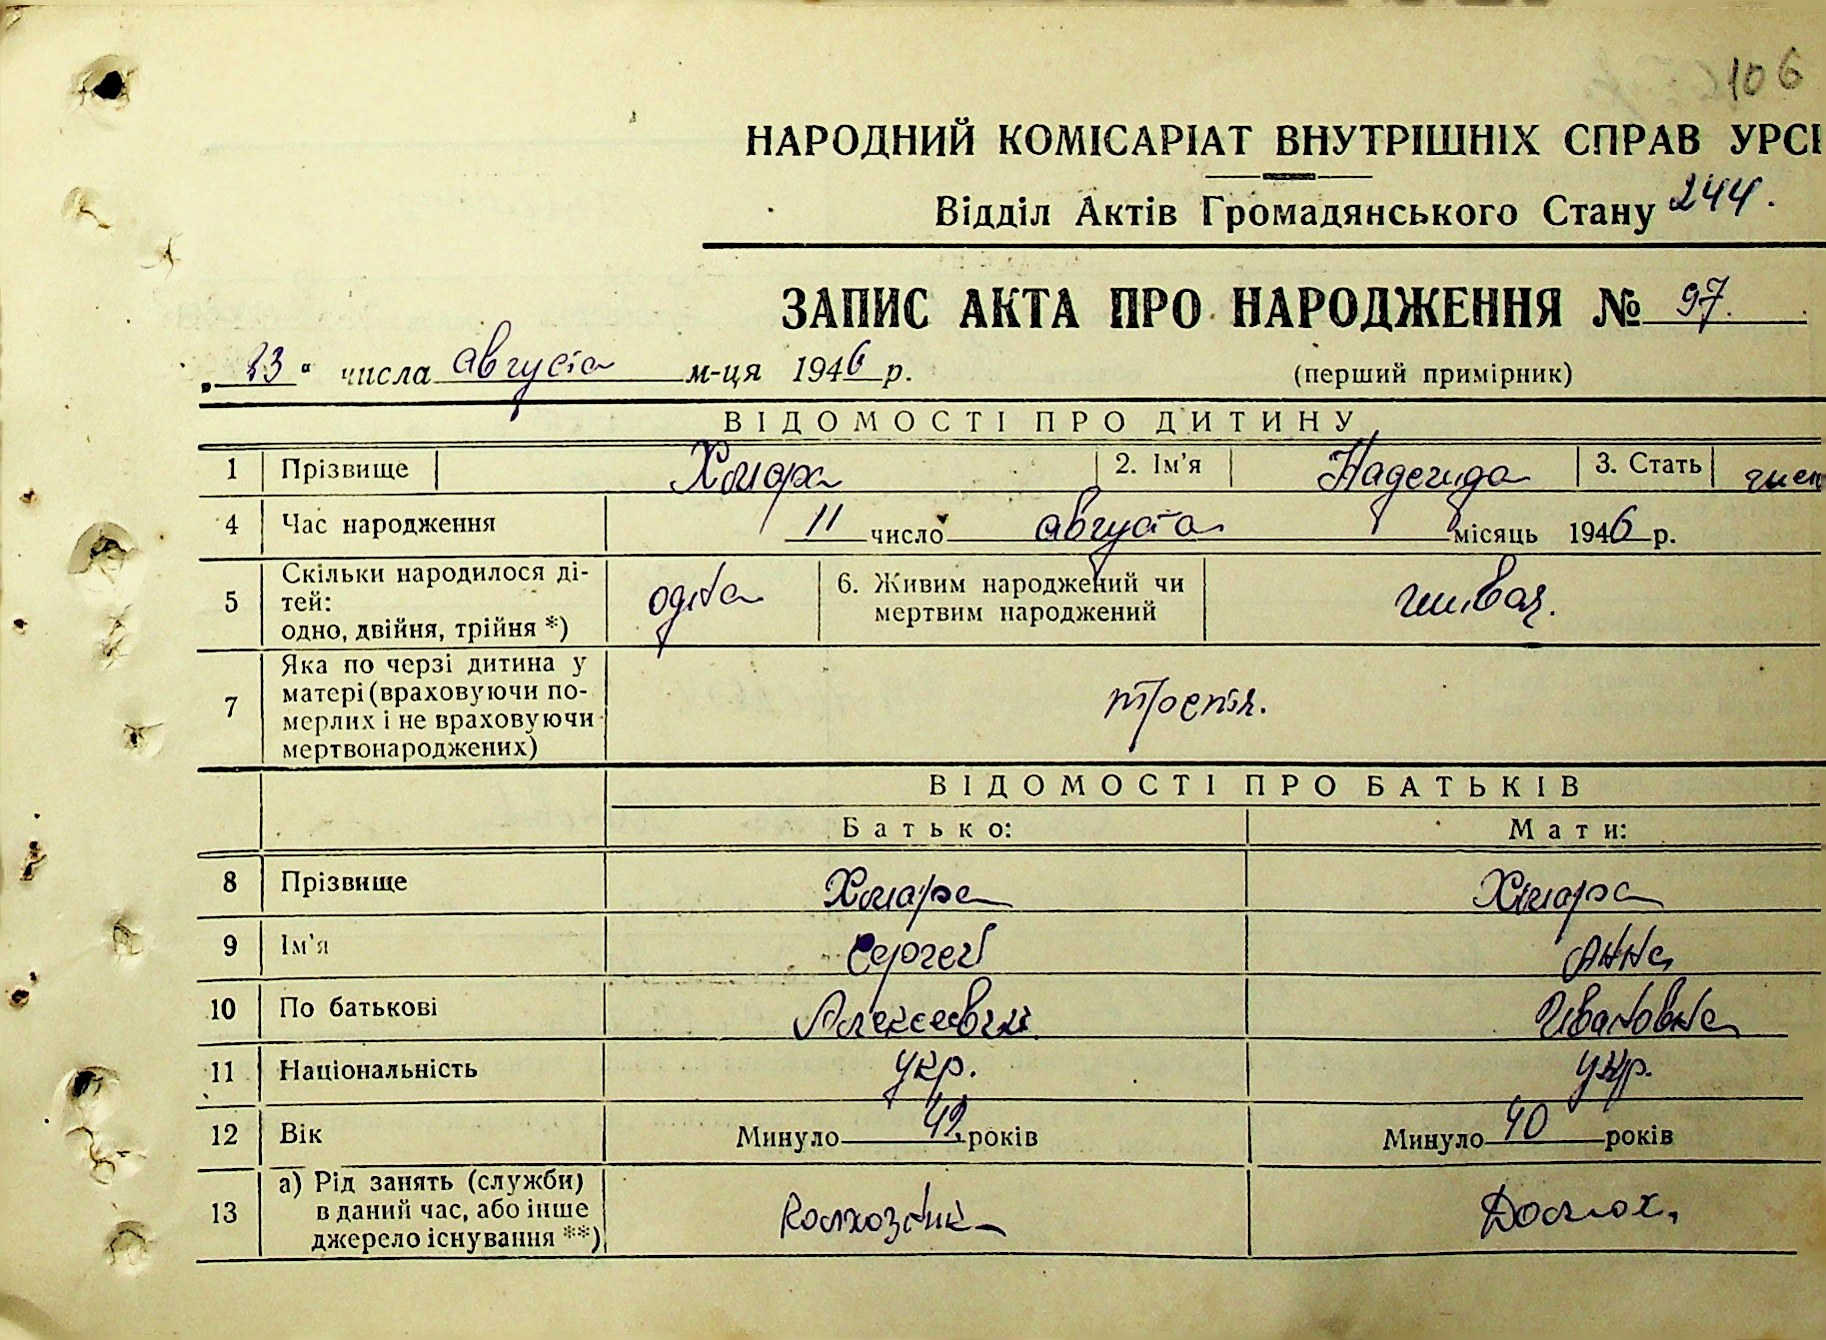 106
НАРОДНИЙ КОМІСАРІАТ ВНУТРІШНІХ СПРАВ УРСР
Відділ Актів Громадянського Стану 244.
ЗАПИС АКТА ПРО НАРОДЖЕННЯ № 97.
„23“ числа августа м-ця 1946 р. (перший примірник)
ВІДОМОСТІ ПРО ДИТИНУ
1 Прізвище Хмара 2. Ім'я Надежда 3. Стать жен
4 Час народження 11 число августа місяць 1946 р.
5 Скільки народилося ді-
тей:
одно, двійня, трійня *) одна
6. Живим народжений чи
мертвим народжений живая.
7 Яка по черзі дитина у
матері (враховуючи по-
мерлих і не враховуючи
мертвонароджених) третя.
ВІДОМОСТІ ПРО БАТЬКІВ
Батько: Мати:
8 Прізвище Хмара Хмара
9 Ім'я Сергей Анна
10 По батькові Алексеевич Ивановна
11 Національність укр. укр.
12 Вік Минуло 42 років Минуло 40 років
13 а) Рід занять (служби)
в даний час, або інше
джерело існування **) Колхозник Домох.